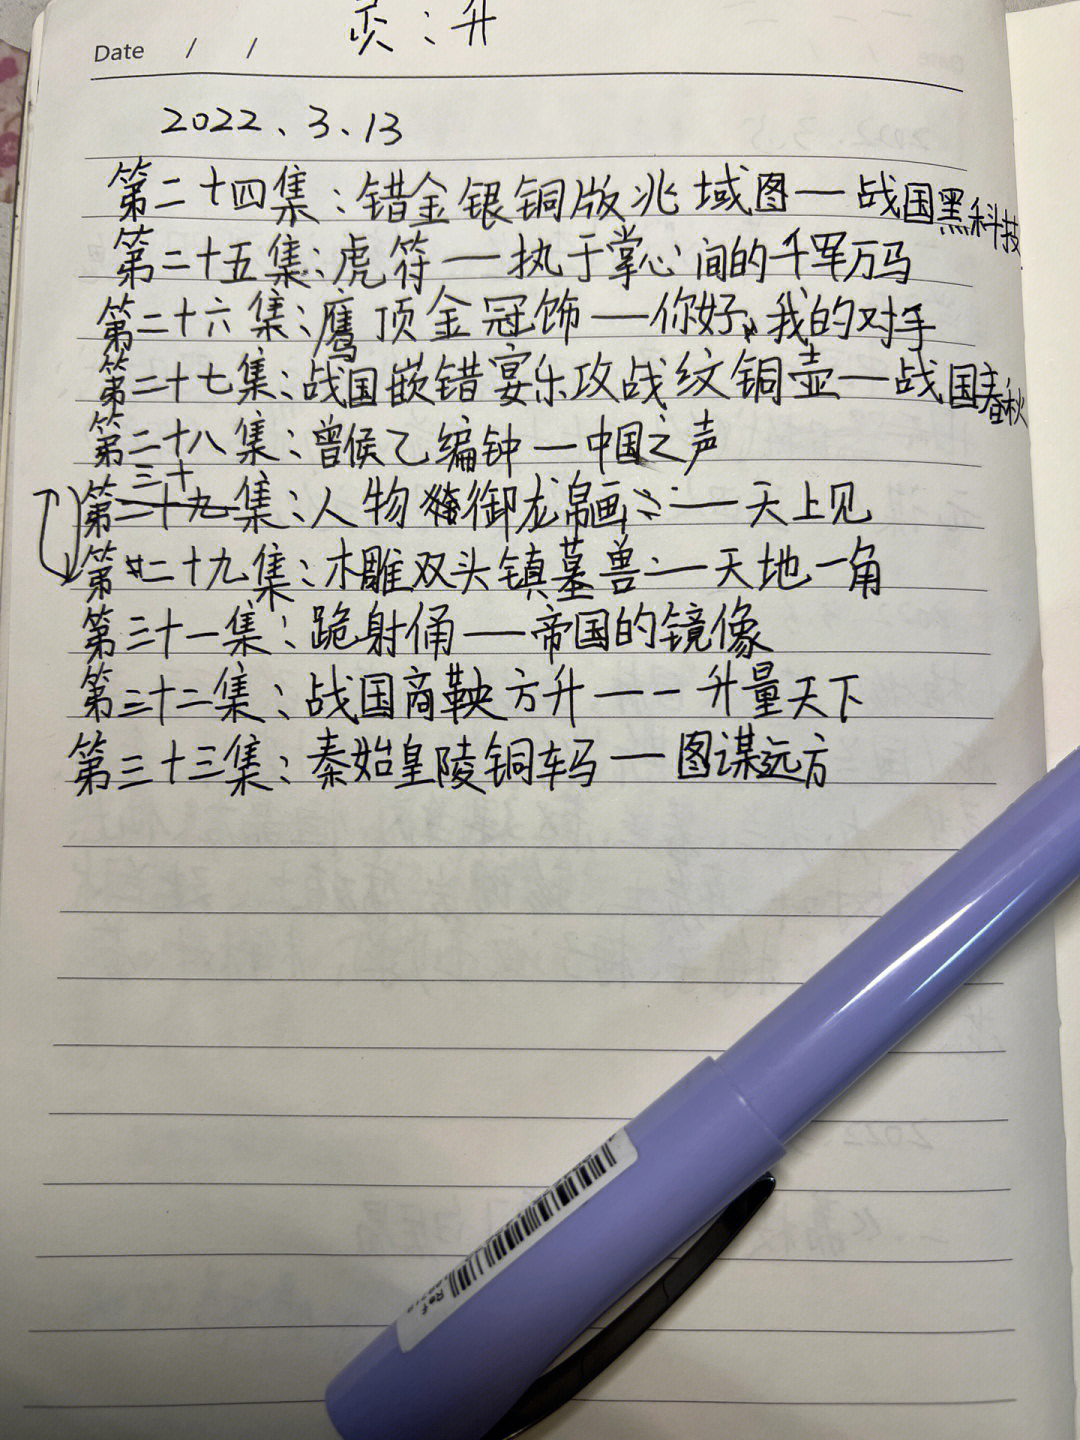 灵：升
Date / /
2022、3、13
第二十四集：错金银铜版兆域图—战国黑科技
第二十五集：虎符—执于掌心间的千军万马
第二十六集：鹰顶金冠饰—你好，我的对手
第二十七集：战国嵌错宴乐攻战纹铜壶—战国春秋
第二十八集：曾侯乙编钟—中国之声
第三十集：人物御龙帛画：—天上见
第二十九集：木雕双头镇墓兽：—天地一角
第三十一集：跪射俑—帝国的镜像
第三十二集：战国商鞅方升——升量天下
第三十三集：秦始皇陵铜车马—图谋远方